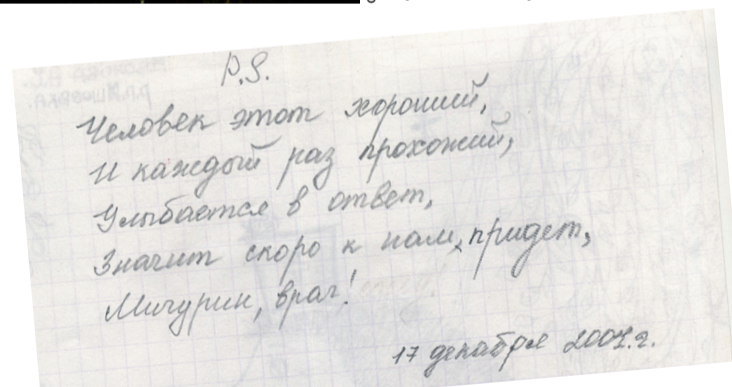 P.S.
Человек этот хороший,
И каждый раз прохожий,
Улыбается в ответ,
Значит скоро к нам, придет,
Мичурин, враг!
17 декабря 2007.г.